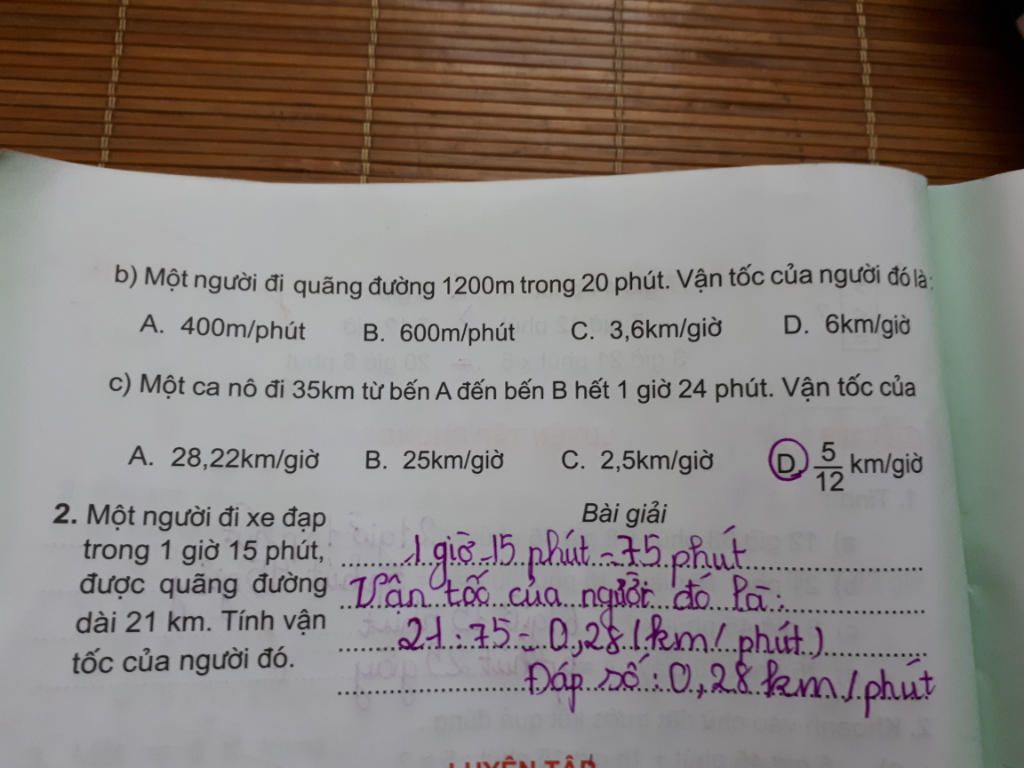 b) Một người đi quãng đường 1200m trong 20 phút. Vận tốc của người đó là:
A. 400m/phút B. 600m/phút C. 3,6km/giờ D. 6km/giờ
c) Một ca nô đi 35km từ bến A đến bến B hết 1 giờ 24 phút. Vận tốc của
A. 28,22km/giờ B. 25km/giờ C. 2,5km/giờ D. 5/12 km/giờ
2. Một người đi xe đạp
trong 1 giờ 15 phút,
được quãng đường
dài 21 km. Tính vận
tốc của người đó.
Bài giải
1 giờ 15 phút = 75 phút
Vận tốc của người đó là:
21 : 75 = 0,28 (km/phút)
Đáp số : 0,28 km/phút
LUYỆN TẬP